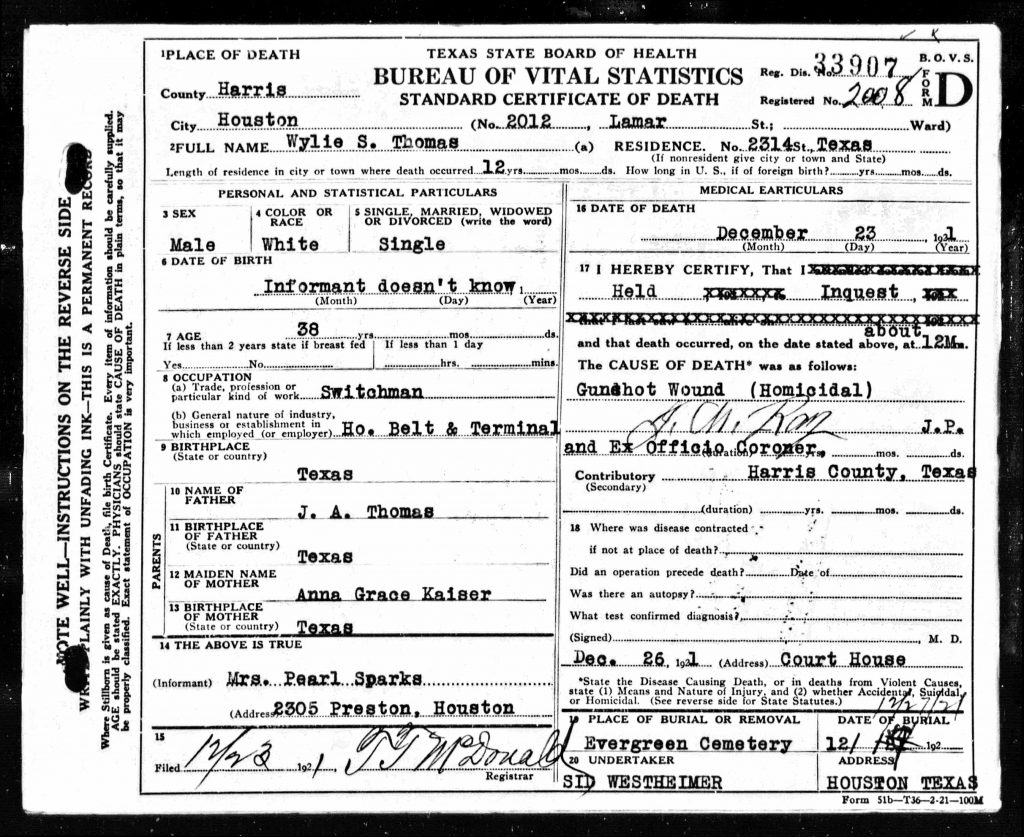 1 PLACE OF DEATH
TEXAS STATE BOARD OF HEALTH
BUREAU OF VITAL STATISTICS
STANDARD CERTIFICATE OF DEATH
B. O. V. S.
FORM D
Reg. Dis. No. 33907
Registered No. 2008
County Harris
City Houston (No. 2012, Lamar St.; Ward)
2 FULL NAME Wylie S. Thomas (a) RESIDENCE. No. 2314 St., Texas
(If nonresident give city or town and State)
Length of residence in city or town where death occurred 12 yrs. mos. ds. How long in U. S., if of foreign birth? yrs. mos. ds.
PERSONAL AND STATISTICAL PARTICULARS
3 SEX
Male
4 COLOR OR RACE
White
5 SINGLE, MARRIED, WIDOWED
OR DIVORCED (write the word)
Single
6 DATE OF BIRTH
Informant doesn't know,
(Month) (Day) (Year)
7 AGE 38 yrs. mos. ds.
If less than 2 years state if breast fed
Yes No
If less than 1 day
hrs. mins.
8 OCCUPATION
(a) Trade, profession or
particular kind of work Switchman
(b) General nature of industry,
business or establishment in
which employed (or employer) Ho. Belt & Terminal
9 BIRTHPLACE
(State or country)
Texas
PARENTS
10 NAME OF
FATHER
J. A. Thomas
11 BIRTHPLACE
OF FATHER
(State or country)
Texas
12 MAIDEN NAME
OF MOTHER
Anna Grace Kaiser
13 BIRTHPLACE
OF MOTHER
(State or country) Texas
14 THE ABOVE IS TRUE
(Informant) Mrs. Pearl Sparks
(Address 2305 Preston, Houston
15
Filed 12/23 1921, T T McDonald
Registrar
MEDICAL PARTICULARS
16 DATE OF DEATH
December 23 1921
(Month) (Day) (Year)
17 I HEREBY CERTIFY, That I
Held Inquest,
about
and that death occurred, on the date stated above, at 12M.
The CAUSE OF DEATH* was as follows:
Gunshot Wound (Homicidal)
J. M. Ray J.P.
and Ex Officio Coroner,
(duration) mos. ds.
Contributory Harris County, Texas
(Secondary)
(duration) yrs. mos. ds.
18 Where was disease contracted
if not at place of death?
Did an operation precede death? Date of
Was there an autopsy?
What test confirmed diagnosis?
(Signed) M. D.
Dec. 26, 1921 (Address) Court House
*State the Disease Causing Death, or in deaths from Violent Causes,
state (1) Means and Nature of Injury, and (2) whether Accidental, Suicidal,
or Homicidal. (See reverse side for State Statutes.)
12/27/21
19 PLACE OF BURIAL OR REMOVAL
Evergreen Cemetery
DATE OF BURIAL
12/ 192
20 UNDERTAKER
SID WESTHEIMER
ADDRESS
HOUSTON TEXAS
Form 51b—T36—2-21—100M
NOTE WELL—INSTRUCTIONS ON THE REVERSE SIDE
WRITE PLAINLY WITH UNFADING INK—THIS IS A PERMANENT RECORD
Where Stillborn is given as cause of Death, file birth Certificate. Every item of information should be carefully supplied.
AGE should be stated EXACTLY. PHYSICIANS should state CAUSE OF DEATH in plain terms, so that it may
be properly classified. Exact statement of OCCUPATION is very important.